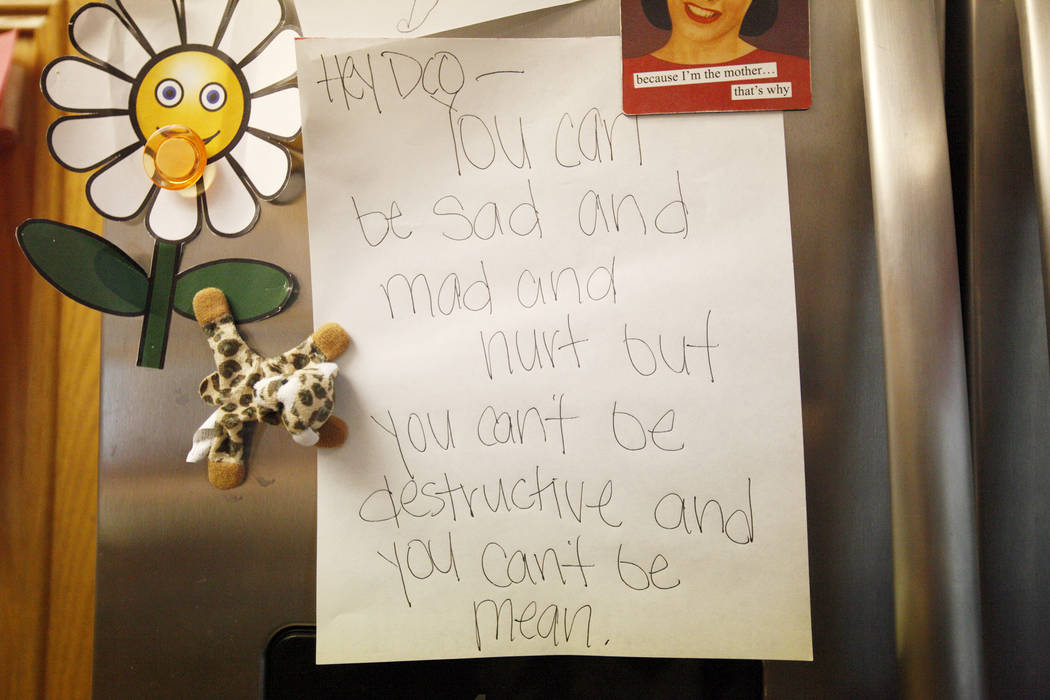 because I'm the mother...
that's why
Hey DCO —
You can
be sad and
mad and
hurt but
you can't be
destructive and
you can't be
mean.